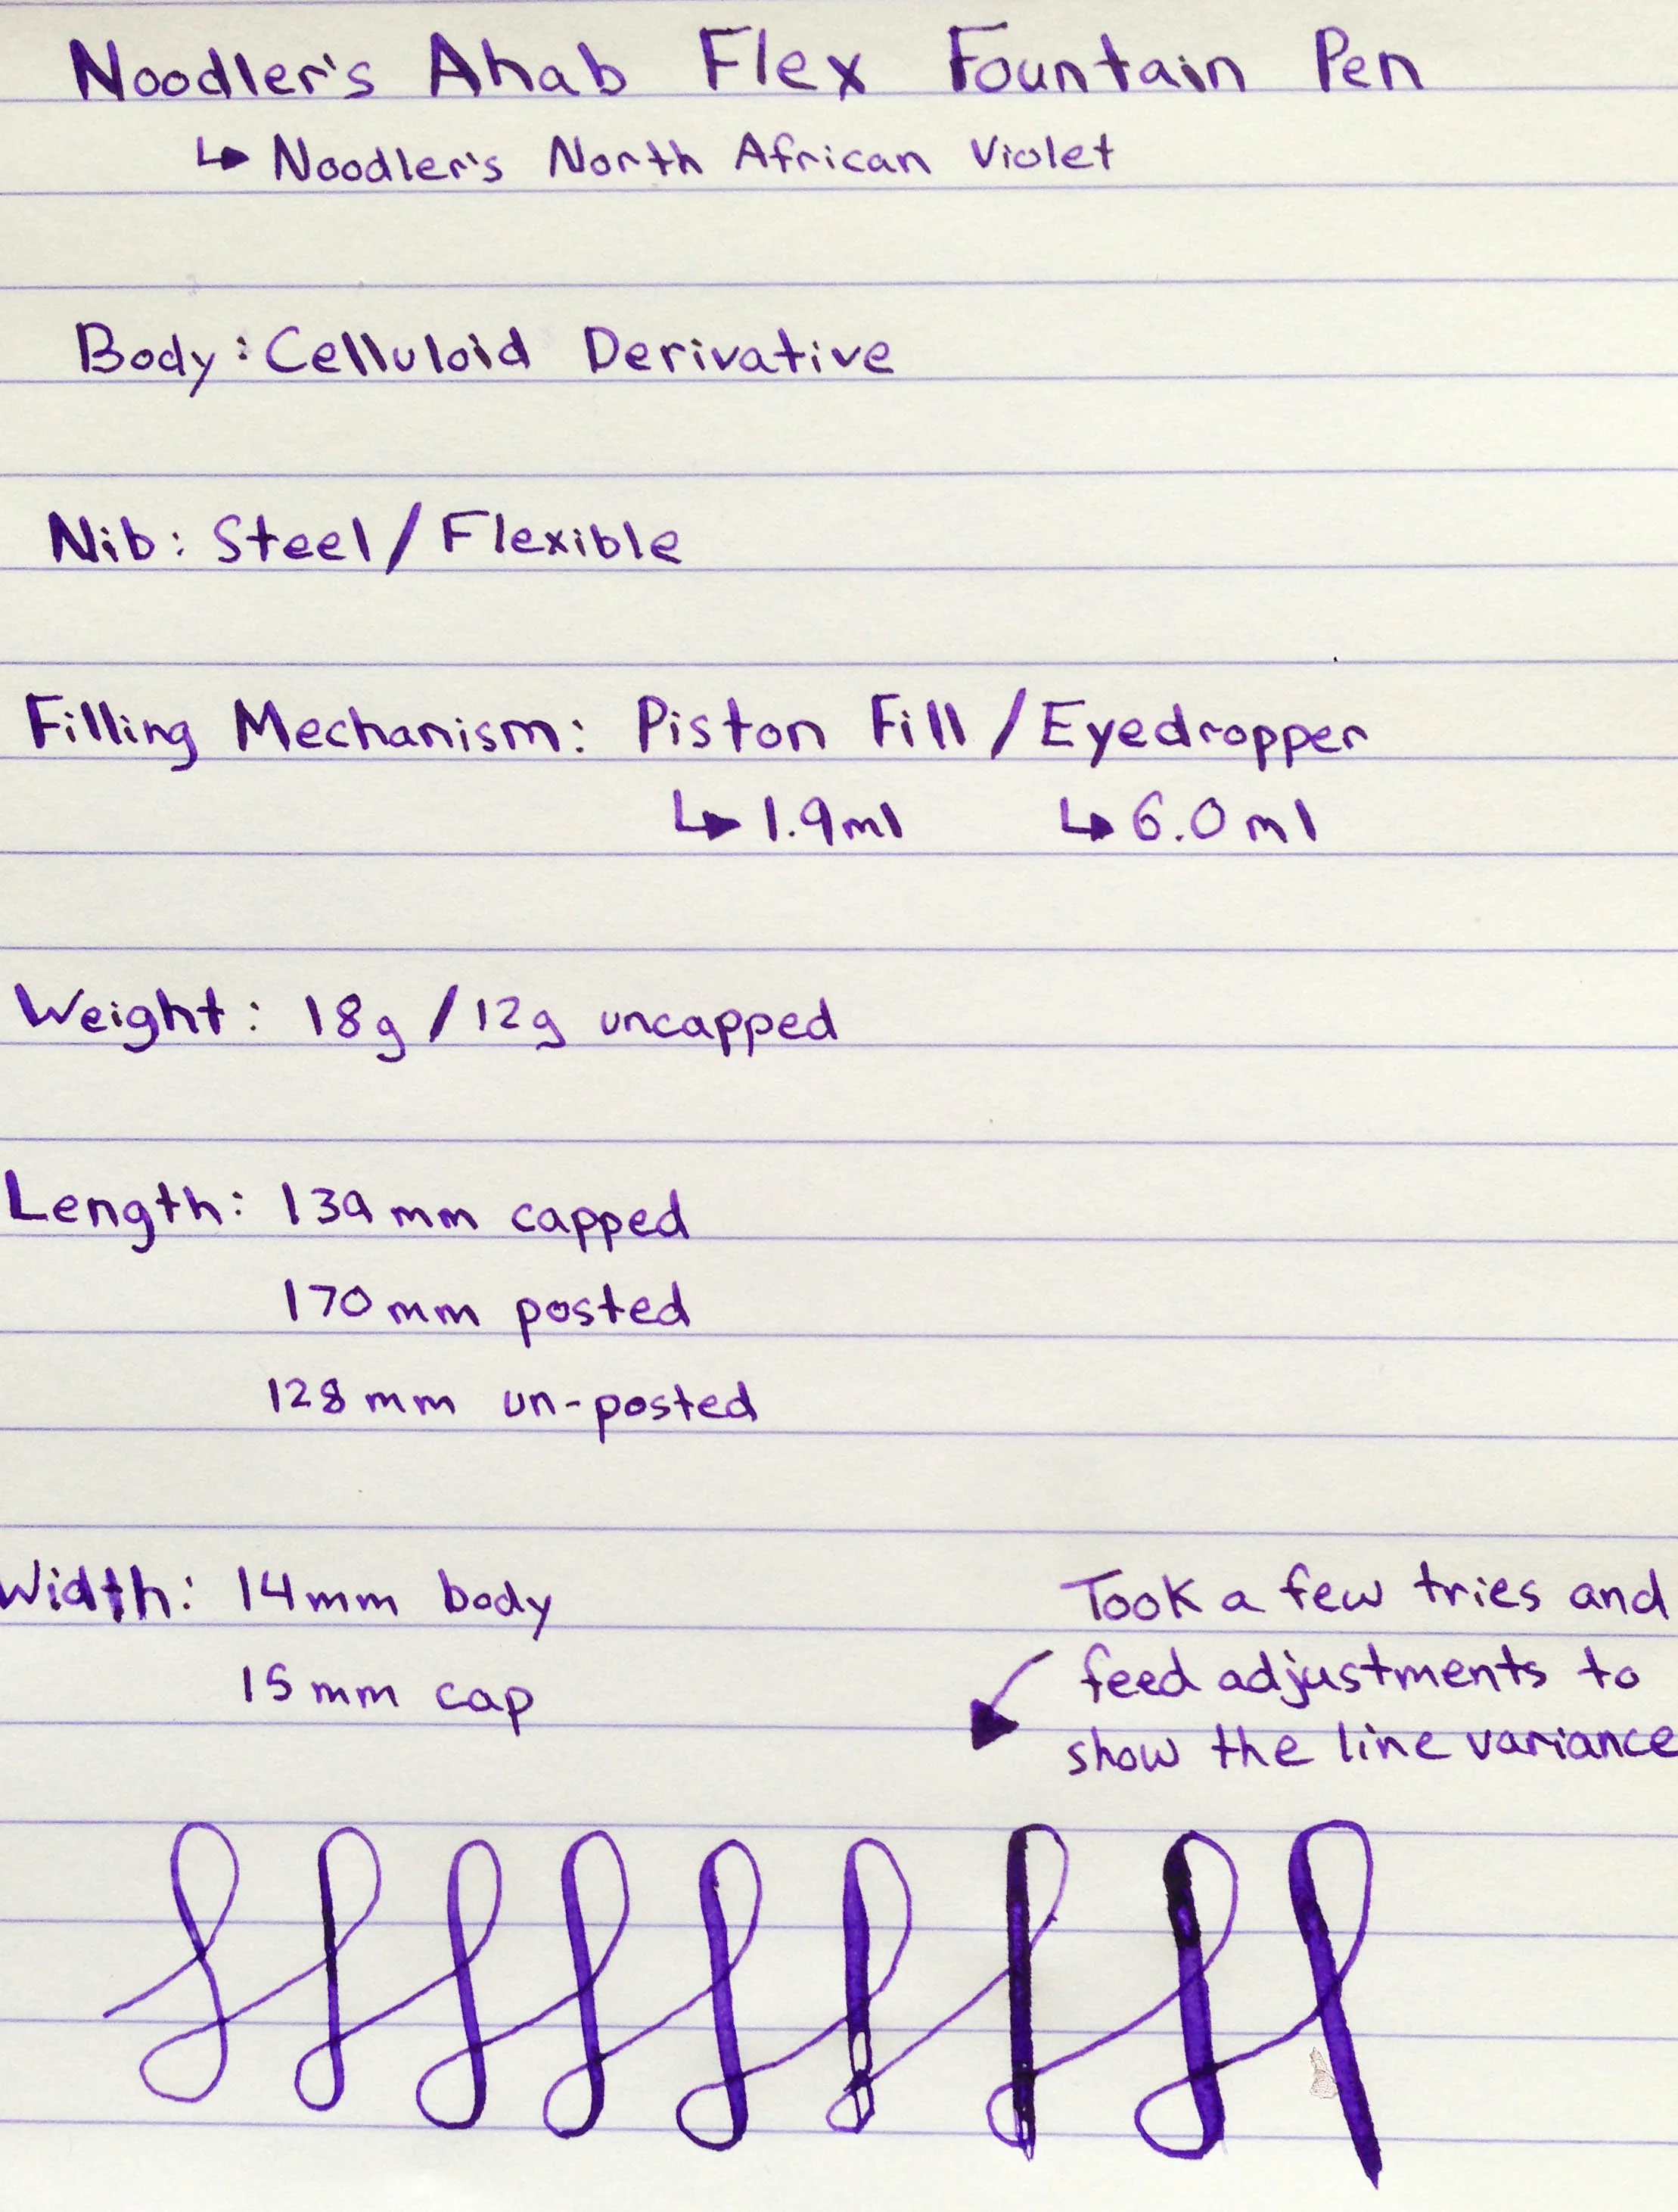 Noodler's Ahab Flex Fountain Pen
↳ Noodler's North African Violet
Body: Celluloid Derivative
Nib: Steel / Flexible
Filling Mechanism: Piston Fill / Eyedropper
↳ 1.9ml ↳ 6.0ml
Weight: 18g / 12g uncapped
Length: 139mm capped
170mm posted
128mm un-posted
Width: 14mm body
15mm cap
Took a few tries and
feed adjustments to
show the line variance